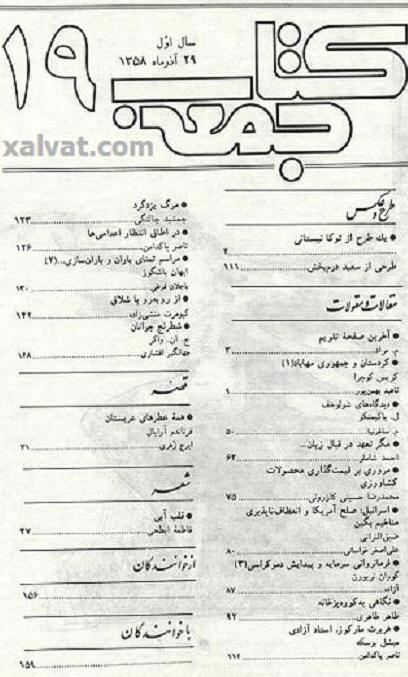 کتاب جمعه
۱۹
سال اوّل
۲۹ آذرماه ۱۳۵۸
xalvat.com
طرح و عکس
● یك طرح از توکا نیستانی
۲
طرحی از سعید درم‌بخش
۱۱۱
مقالات و مقولات
● آخرین صفحهٔ تقویم
م. مراد
۳
● کردستان و جمهوری مهاباد(۱)
کریس کوچرا
۱
● دیدگاههای شولوخف
ل. یاکیمنکو
۵۰
● مگر تعهد در قبال زبان...
احمد شاملو
۶۲
● مروری بر قیمت‌گذاری محصولات
کشاورزی
محمدرضا حسینی کازرونی
۷۵
● اسرائیل: صلح آمریکا و انعطاف‌ناپذیری
مناخیم بگین
علی‌اصغر خراسانی
۸۰
● فرمانروائی سرمایه و پیدایش دموکراسی(۳)
گوران تربورن
آزاد
۸۷
● نگاهی به کوره‌پزخانه
طاهر طاهری
۹۲
● هربرت مارکوز، استاد آزادی
میشل بوسکه
ناصر پاکدامن
۱۱۲
● مرگ یزدگرد
جمشید چالنگی
۱۲۳
● در اطاق انتظار اعدامی‌ها
ناصر پاکدامن
۱۲۶
● مراسم تمنای باران و باران‌سازی...(۷)
ایهان باشگوز
باجلان فرخی
۱۳۰
● از روبه‌رو با شلاق
کیومرث منشی‌زاده
۱۴۲
● شطرنج جوانان
ج. ان. واکر
جهانگیر افشاری
۱۴۸
قصه
● همهٔ عطرهای عربستان
فرناندو آرابال
ایرج زهری
۲۱
شعر
● قلب آبی
فاطمهٔ ابطحی
۴۷
از خوانندگان
۱۵۶
با خوانندگان
۱۵۹